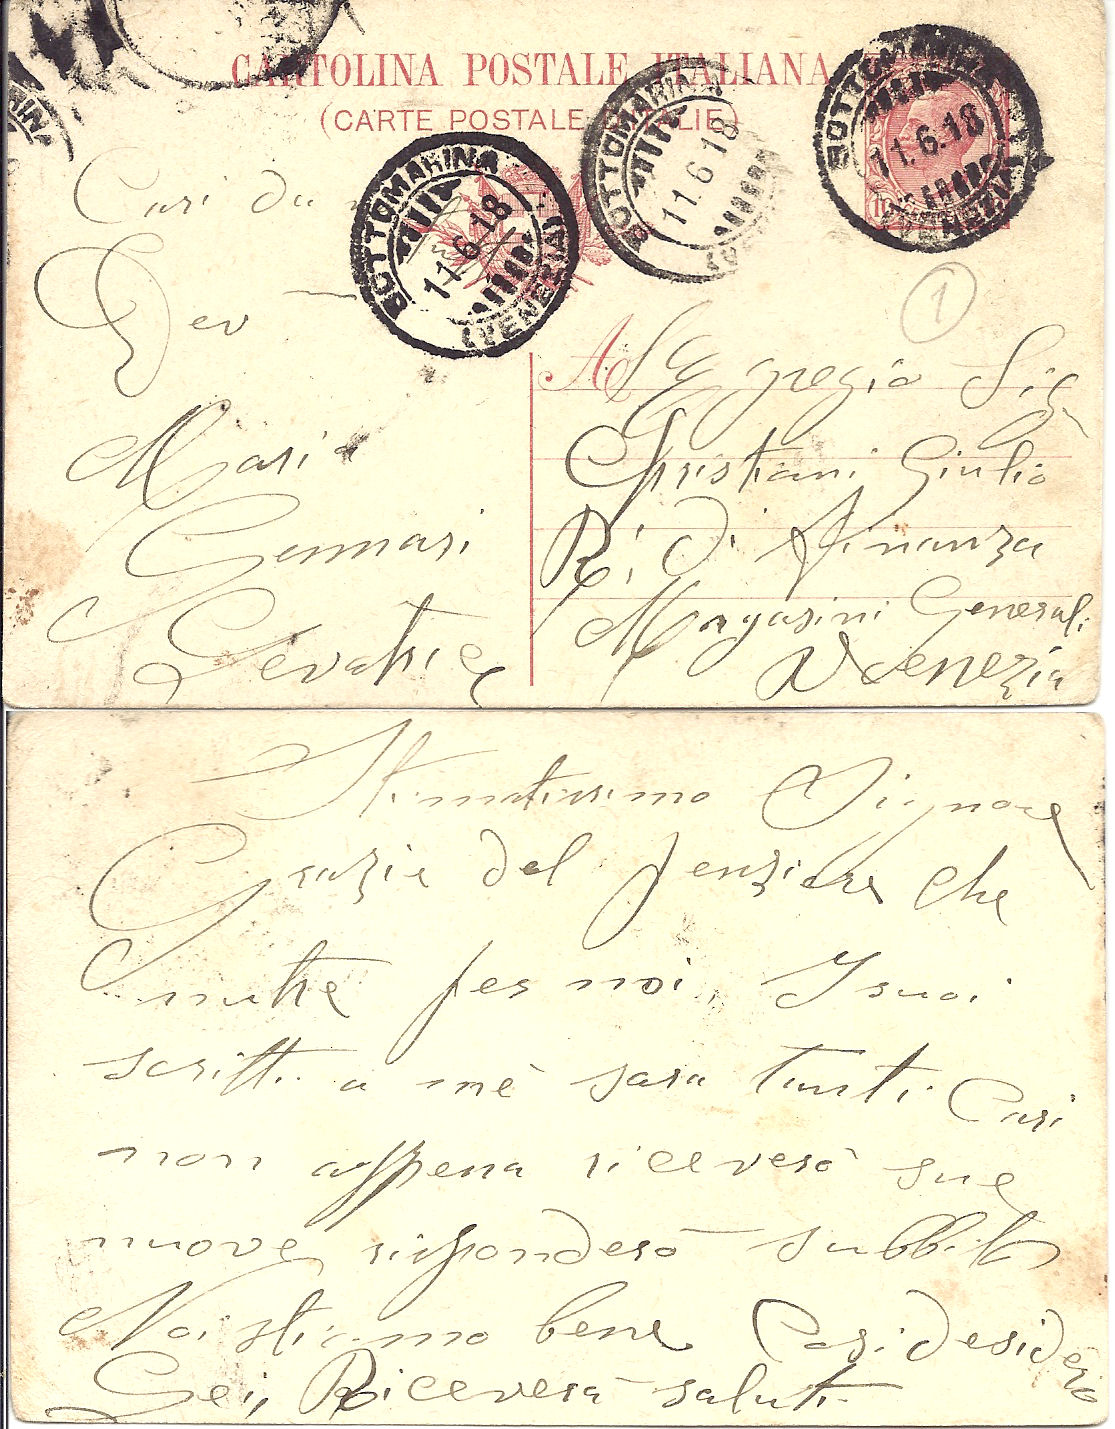 CARTOLINA POSTALE ITALIANA
(CARTE POSTALE D'ITALIE)
BOTTOMARINA
11.6.18
(VENEZIA)
BOTTOMARINA
11.6.18
BOTTOMARINA
11.6.18
(VENEZIA)
1
Cari da
Dev
Maria
Gennari
Levatrice
A
Egregio Sig
Christiani Giulio
R. di Finanza
Magasini Generali
Venezia
Stimatissimo Signore
Grazie del penziere che
nutre per noi, I suoi
scritti a mè sara tanti Cari
non appena riceverò sue
nuove risponderò subbito
Noi stiamo bene Cosi desidero
Lei, Riceverà saluti